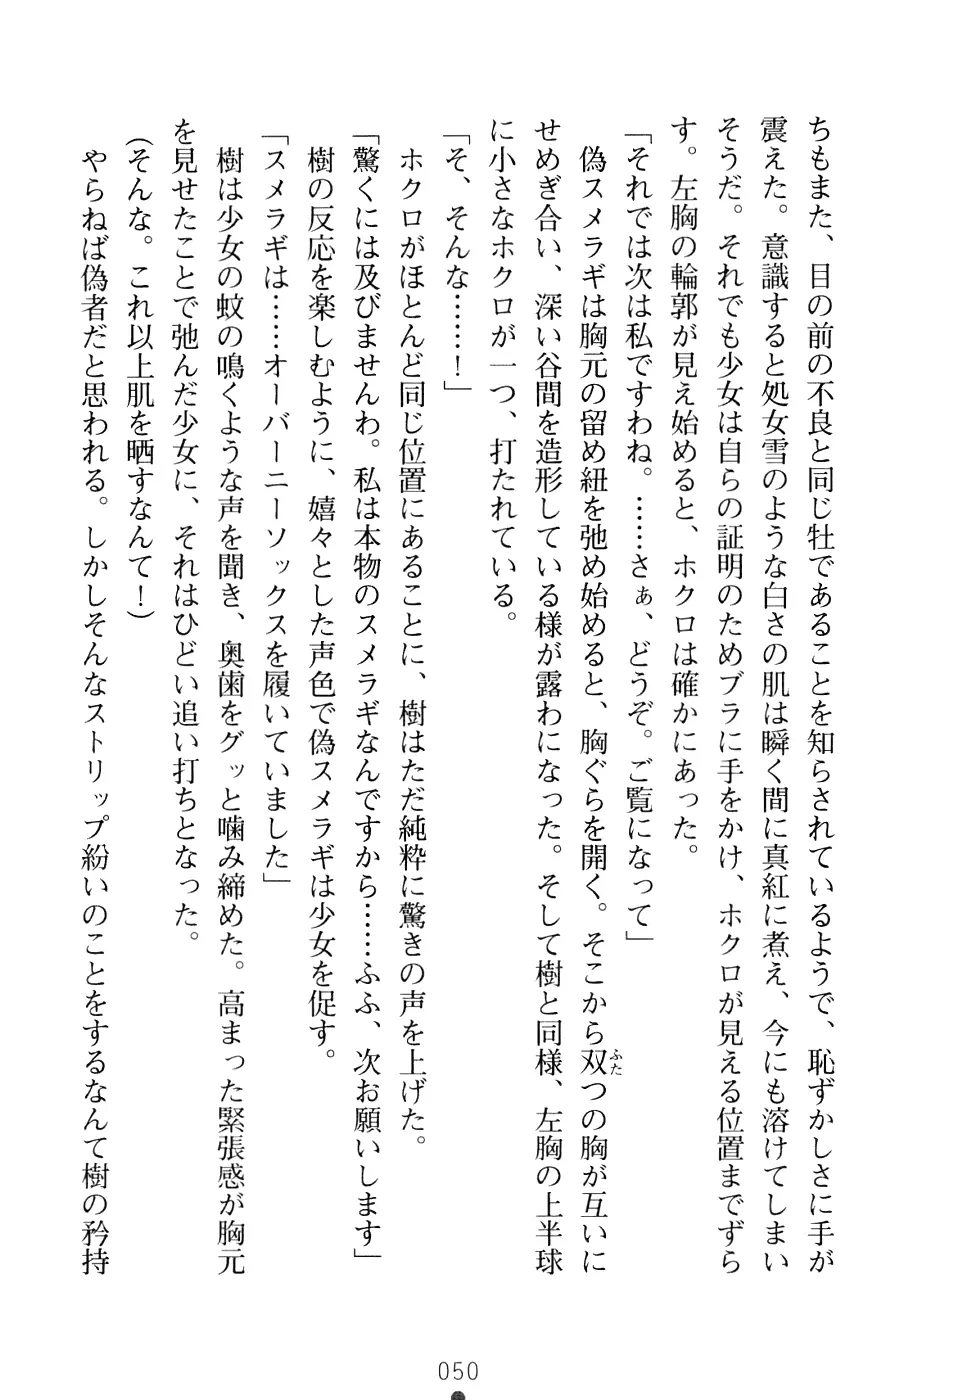 ちもまた、目の前の不良と同じ牡であることを知らされているようで、恥ずかしさに手が
震えた。意識すると処女雪のような白さの肌は瞬く間に真紅に煮え、今にも溶けてしまい
そうだ。それでも少女は自らの証明のためブラに手をかけ、ホクロが見える位置までずら
す。左胸の輪郭が見え始めると、ホクロは確かにあった。
「それでは次は私ですわね。……さぁ、どうぞ。ご覧になって」
偽スメラギは胸元の留め紐を弛め始めると、胸ぐらを開く。そこから双つの胸が互いに
ふた
せめぎ合い、深い谷間を造形している様が露わになった。そして樹と同様、左胸の上半球
に小さなホクロが一つ、打たれている。
「そ、そんな……！」
ホクロがほとんど同じ位置にあることに、樹はただ純粋に驚きの声を上げた。
「驚くには及びませんわ。私は本物のスメラギなんですから……ふふ、次お願いします」
樹の反応を楽しむように、嬉々とした声色で偽スメラギは少女を促す。
「スメラギは……オーバーニーソックスを履いていました」
樹は少女の蚊の鳴くような声を聞き、奥歯をグッと噛み締めた。高まった緊張感が胸元
を見せたことで弛んだ少女に、それはひどい追い打ちとなった。
（そんな。これ以上肌を晒すなんて！）
やらねば偽者だと思われる。しかしそんなストリップ紛いのことをするなんて樹の矜持
050